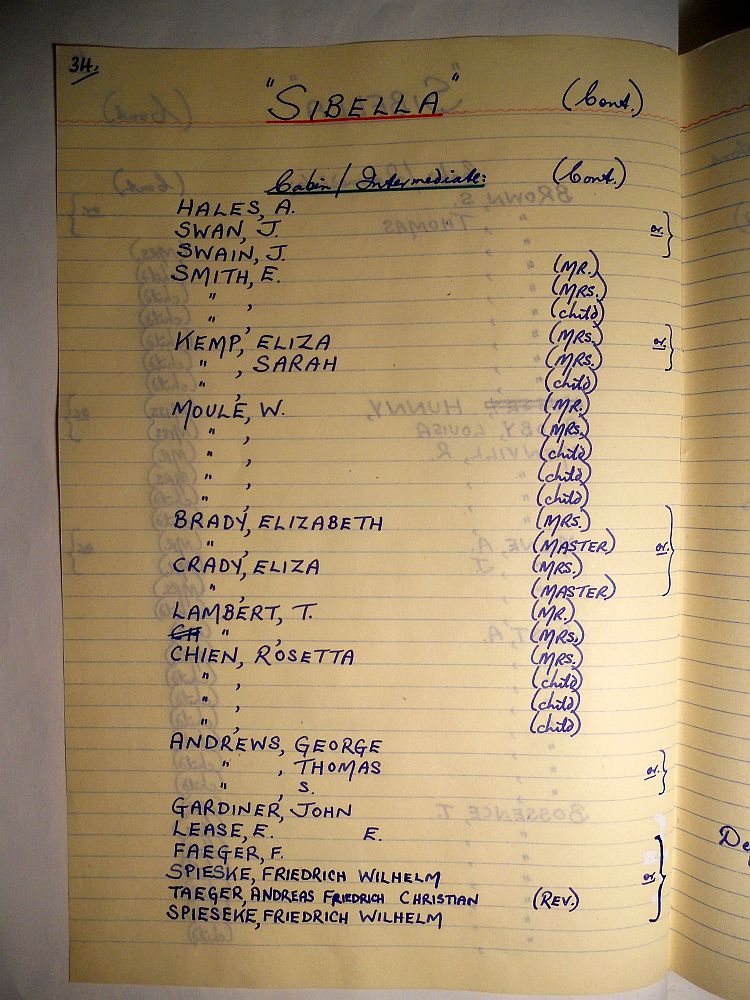 34.
"SIBELLA" (Cont.)
Cabin / Intermediate: (Cont.)
HALES, A.
SWAN, J. or. }
SWAIN, J.
SMITH, E. (MR.)
" , (MRS.)
" , (child)
KEMP, ELIZA (MRS.) or. }
" , SARAH (MRS.)
" , (child)
MOULE, W. (MR.)
" , (MRS.)
" , (child)
" , (child)
" , (child)
BRADY, ELIZABETH (MRS.)
" , (MASTER) or. }
CRADY, ELIZA (MRS.)
" , (MASTER)
LAMBERT, T. (MR.)
CH " , (MRS.)
CHIEN, ROSETTA (MRS.)
" , (child)
" , (child)
" , (child)
ANDREWS, GEORGE
" , THOMAS or. }
" , S.
GARDINER, JOHN
LEASE, E. E.
FAEGER, F.
SPIESKE, FRIEDRICH WILHELM or. }
TAEGER, ANDREAS FRIEDRICH CHRISTIAN (REV.)
SPIESEKE, FRIEDRICH WILHELM